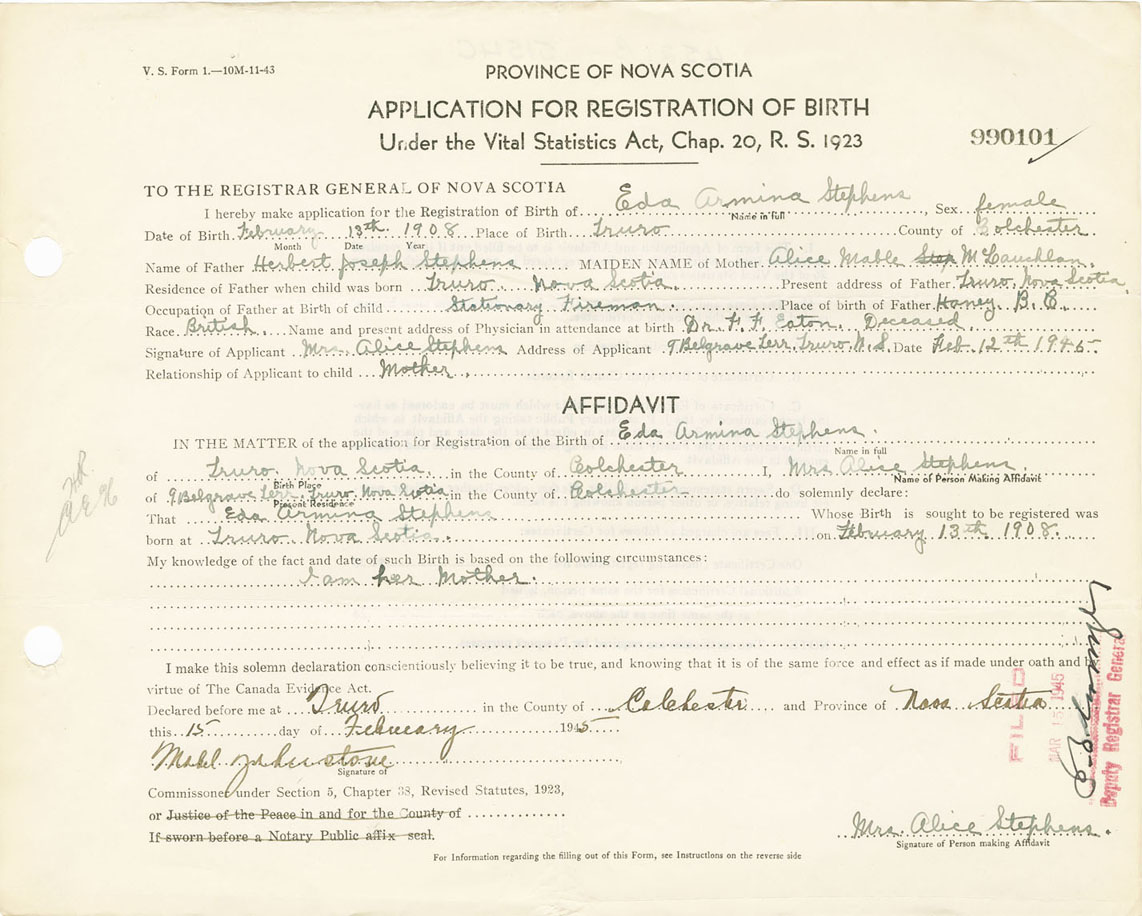 V. S. Form 1.—10M-11-43
PROVINCE OF NOVA SCOTIA
APPLICATION FOR REGISTRATION OF BIRTH
Under the Vital Statistics Act, Chap. 20, R. S. 1923
990101
TO THE REGISTRAR GENERAL OF NOVA SCOTIA
I hereby make application for the Registration of Birth of Eda Armina Stephens, Sex female
Name in full
Date of Birth February 13th 1908 Place of Birth Truro County of Colchester
Month Date Year
Name of Father Herbert Joseph Stephens MAIDEN NAME of Mother Alice Mable Step McLauchlan
Residence of Father when child was born Truro Nova Scotia Present address of Father Truro, Nova Scotia,
Occupation of Father at Birth of child Stationary Fireman Place of birth of Father Haney. B. C.
Race British Name and present address of Physician in attendance at birth Dr. F. F. Eaton. Deceased.
Signature of Applicant Mrs. Alice Stephens Address of Applicant 9 Belgrave Terr. Truro. N. S. Date Feb. 12th 1945
Relationship of Applicant to child Mother.
AFFIDAVIT
IN THE MATTER of the application for Registration of the Birth of Eda Armina Stephens.
Name in full
of Truro. Nova Scotia. in the County of Colchester I, Mrs. Alice Stephens.
Birth Place Name of Person Making Affidavit
of 9 Belgrave Terr. Truro. Nova Scotia in the County of Colchester do solemnly declare:
Present Residence
That Eda Armina Stephens Whose Birth is sought to be registered was
born at Truro Nova Scotia. on February 13th 1908.
My knowledge of the fact and date of such Birth is based on the following circumstances:
I am her Mother.
I make this solemn declaration conscientiously believing it to be true, and knowing that it is of the same force and effect as if made under oath and by
virtue of The Canada Evidence Act.
Declared before me at Truro in the County of Colchester and Province of Nova Scotia
this 15 day of February 1945
Mabel Johnstone
Signature of
Commissoner under Section 5, Chapter 38, Revised Statutes, 1923,
or Justice of the Peace in and for the County of
If sworn before a Notary Public affix seal.
Mrs. Alice Stephens.
Signature of Person making Affidavit
For Information regarding the filling out of this Form, see Instructions on the reverse side
FILED
MAR 15 1945
Deputy Registrar General